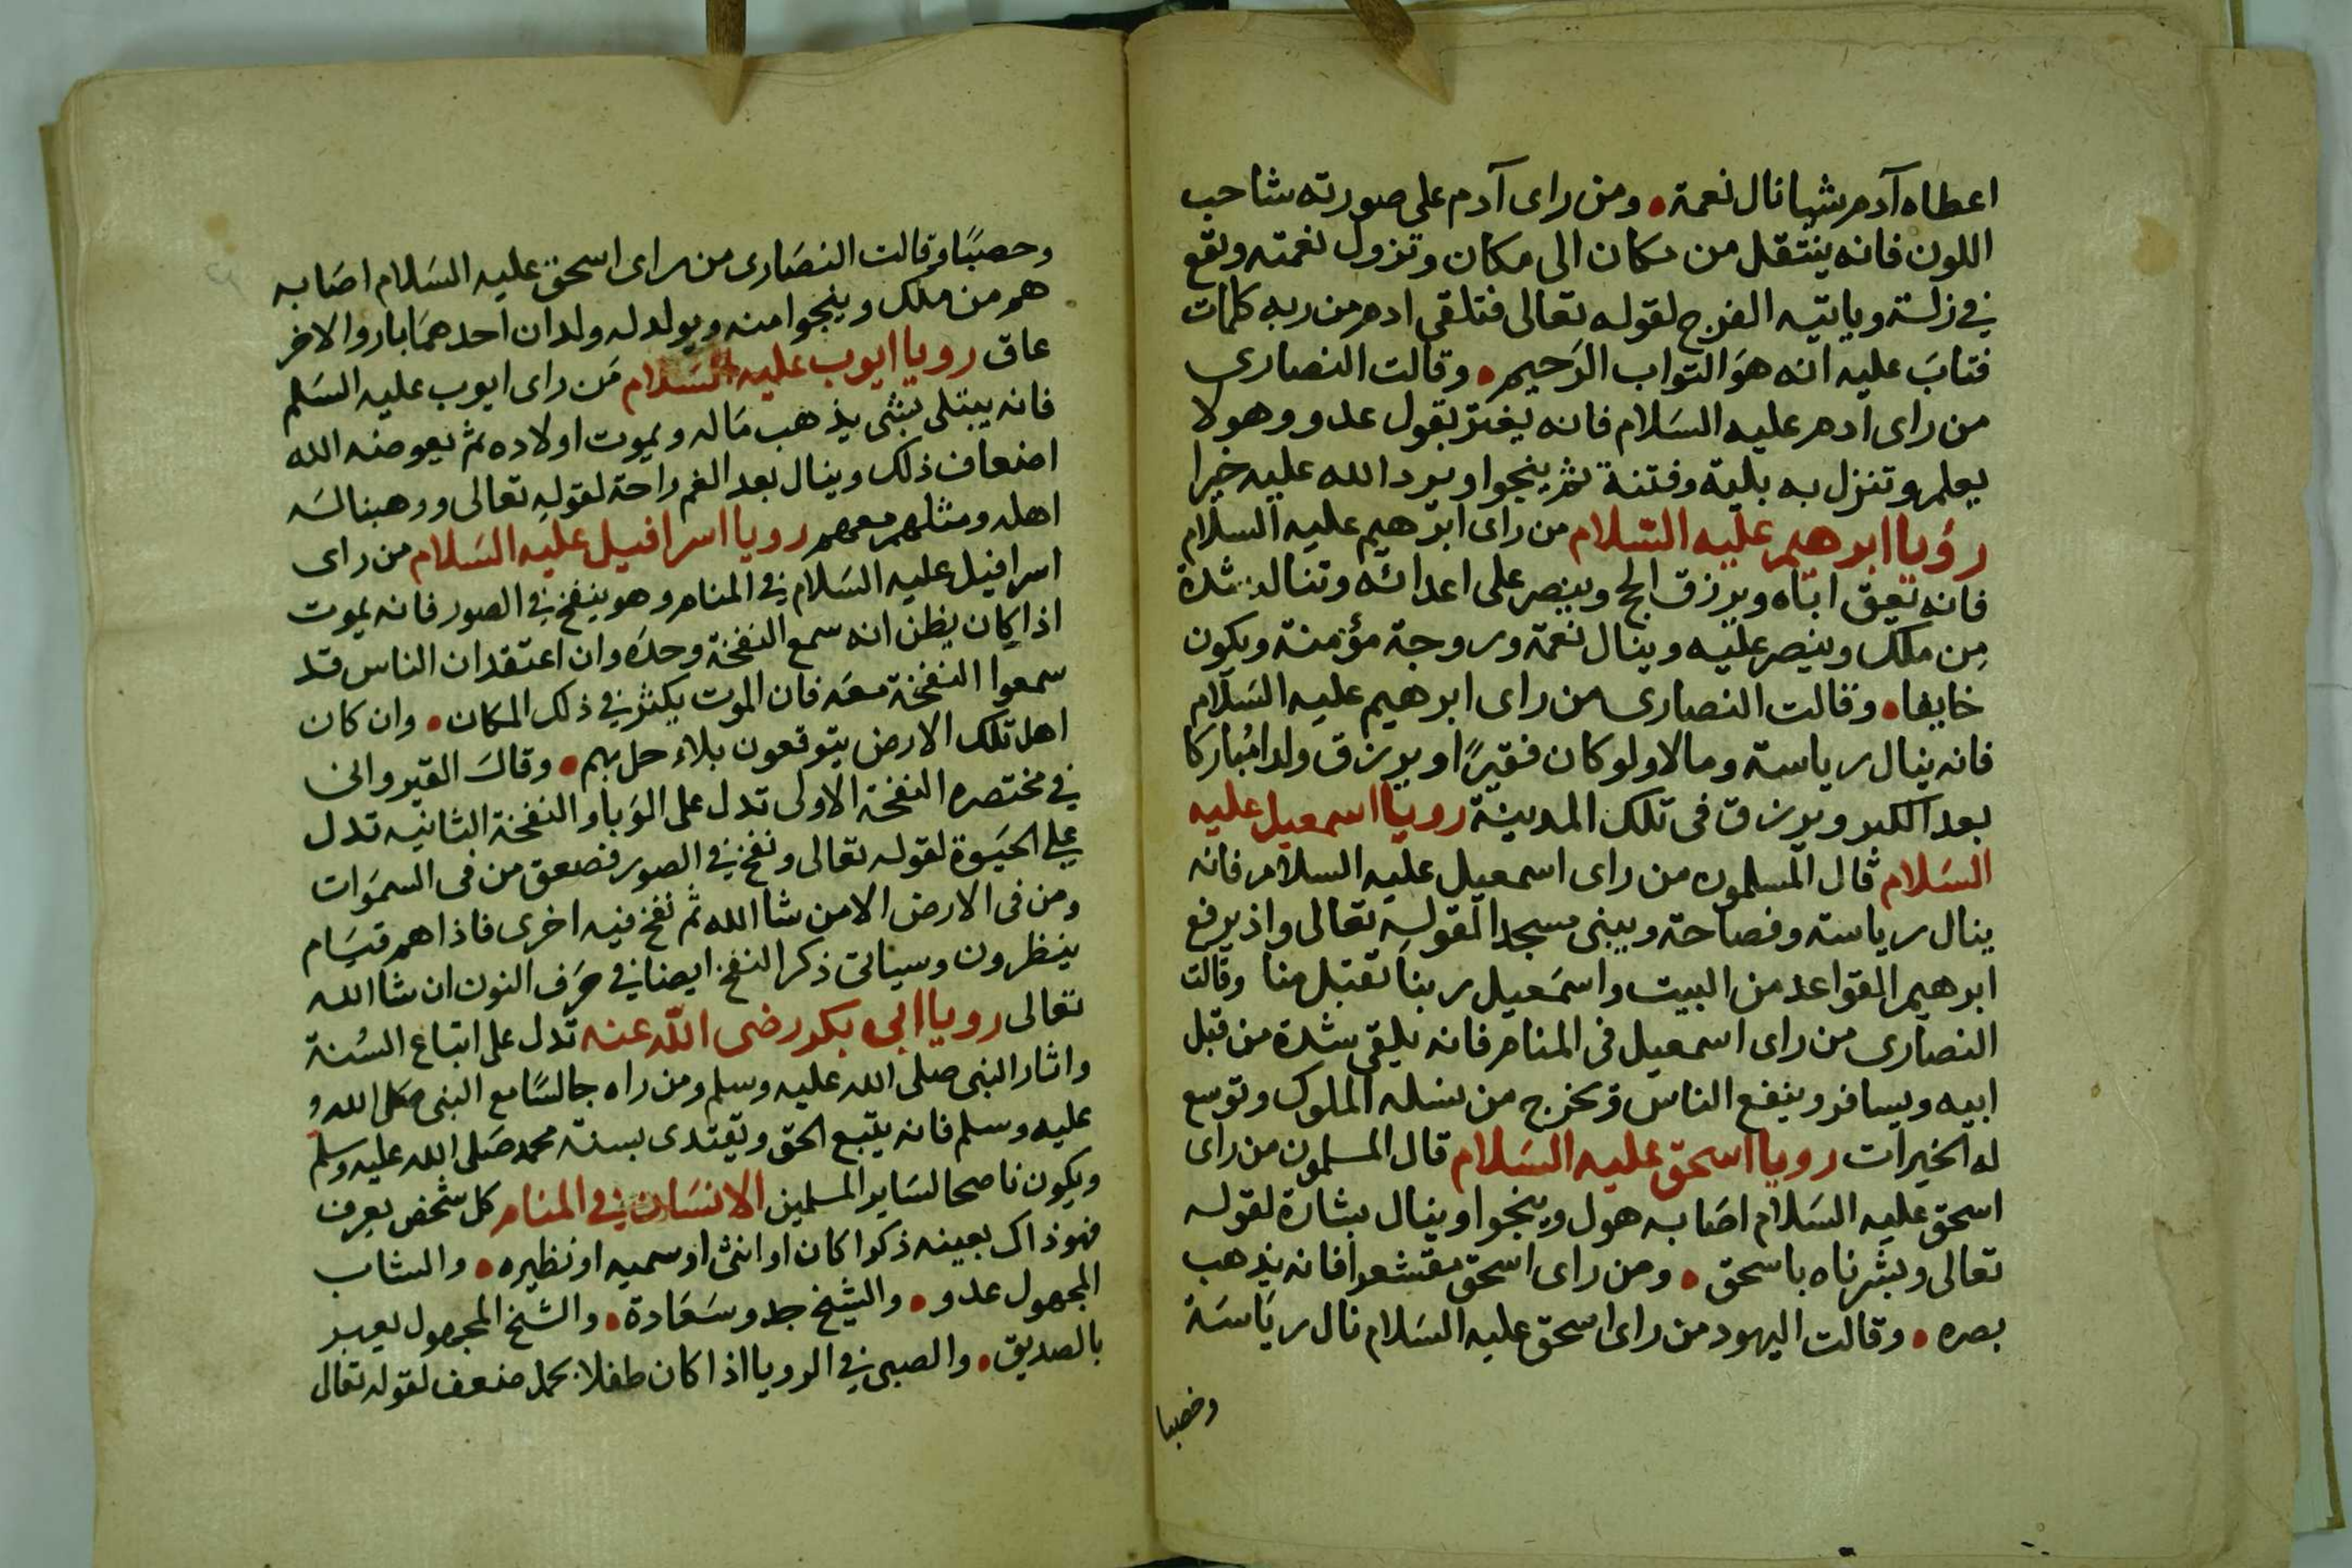 اعطاه آدم شيا نال نعمة ومن راى آدم على صورته شاحب
اللون فانه ينتقل من مكان الى مكان وتزول نعمته وتقع
في زلة وياتيه الفرج لقوله تعالى فتلقى ادم من ربه كلمات
فتابَ عليه انه هوَ التواب الرَحيم وقالت النصارى
من راى ادم عليه السَلام فانه يغتر بقول عدو وهولا
يعلم وتنزل به بلية وفتنة ثم ينجوا ويرد الله عليه خيرا
رؤيا ابرهيم عليه السَلام من راى ابرهيم عليه السلام
فانه يعق اباه ويرزق الحج وينصر على اعدائه وتناله شدة
من ملك وينصر عليه وينال نعمة وزوجة مؤمنة ويكون
خايفا وقالت النصارى من راى ابرهيم عليه السَلام
فانه ينال رياسة ومالا ولو كان فقيرًا ويرزق ولدا مُباركا
بعد الكبر ويرزق فى تلك المدينة رويا اسمعيل عليه
السَلام قال المسلمون من راى اسمعيل عليه السلام فانه
ينال رياسة وفصاحة ويبنى مسجدا لقوله تعالى واذ يرفع
ابرهيم القواعد من البيت واسمَعيل ربنا تقبل منا وقالت
النصارى من راى اسمعيل فى المنام فانه يلقى شدة من قبل
ابيه ويسافر وينفع الناس وتخرج من نسله الملوك وتوسع
له الخيرات رويا اسحق عليه السَلام قال المسلمون من راى
اسحق عليه السَلام اصَابه هول وينجوا وينال بشارة لقوله
تعالى وبشرناه باسحق ومن راى اسحق مقشعرا فانه يذهب
بصره وقالت اليهود من راى اسحق عليه السَلام نال ريَاسَة
وخصبا
وحصبًا وقالت النصَارى من راى اسحق عليه السَلام اصَابه
هم من ملك وينجوا منه ويولد له ولدان احدهمَا بار والاخر
عاق رويا ايوب عليه السَلام مَن راى ايوب عليه السَلم
فانه يبتلى بشى يذهب مَاله ويموت اولاده ثم يعوضه الله
اضعاف ذلك وينال بعد الغم راحة لقوله تعالى ووهبنا له
اهله ومثلهم معهم رويا اسرافيل عليه السَلام من راى
اسرافيل عليه السَلام في المنام وهو ينفخ في الصور فانه يموت
اذا كان يظن انه سمع النفخة وحدَه وان اعتقد ان الناس قد
سمعوا النفخة معَه فان الموت يكثر في ذلك المكان وان كان
اهل تلك الارض يتوقعون بلاء حل بهم وقالَ القيروانى
في مختصره النفخة الاولى تدل على الوَبا والنفخة الثانيه تدل
على الحَيوة لقوله تعالى ونفخ في الصور فصعق من فى السموَات
ومن فى الارض الا من شا الله ثم نفخ فيه اخرى فاذا هم قيَام
ينظرون وسياتى ذكر النفخ ايضا في حَرف النون ان شا الله
تعالى رويا ابى بكر رضى الله عنه تدل على اتباع السُنة
واثار النبى صلى الله عليه وسلم ومن راه جالسًا مع النبى صَلى الله
عليه وسلم فانه يتبع الحق ويقتدى بسنة محمد صَلى الله عليه وسلم
ويكون ناصحا لسَاير المسلمين الانسَان في المنام كل شخص يعرف
فهو ذاك بعينه ذكرا كان او انثى او سميه او نظيره والشاب
المجهول عدو والشيخ جد وسَعَادة والشيخ المجهول يعبر
بالصديق والصبى في الرويا اذا كان طفلا يحمل ضعف لقوله تعالى